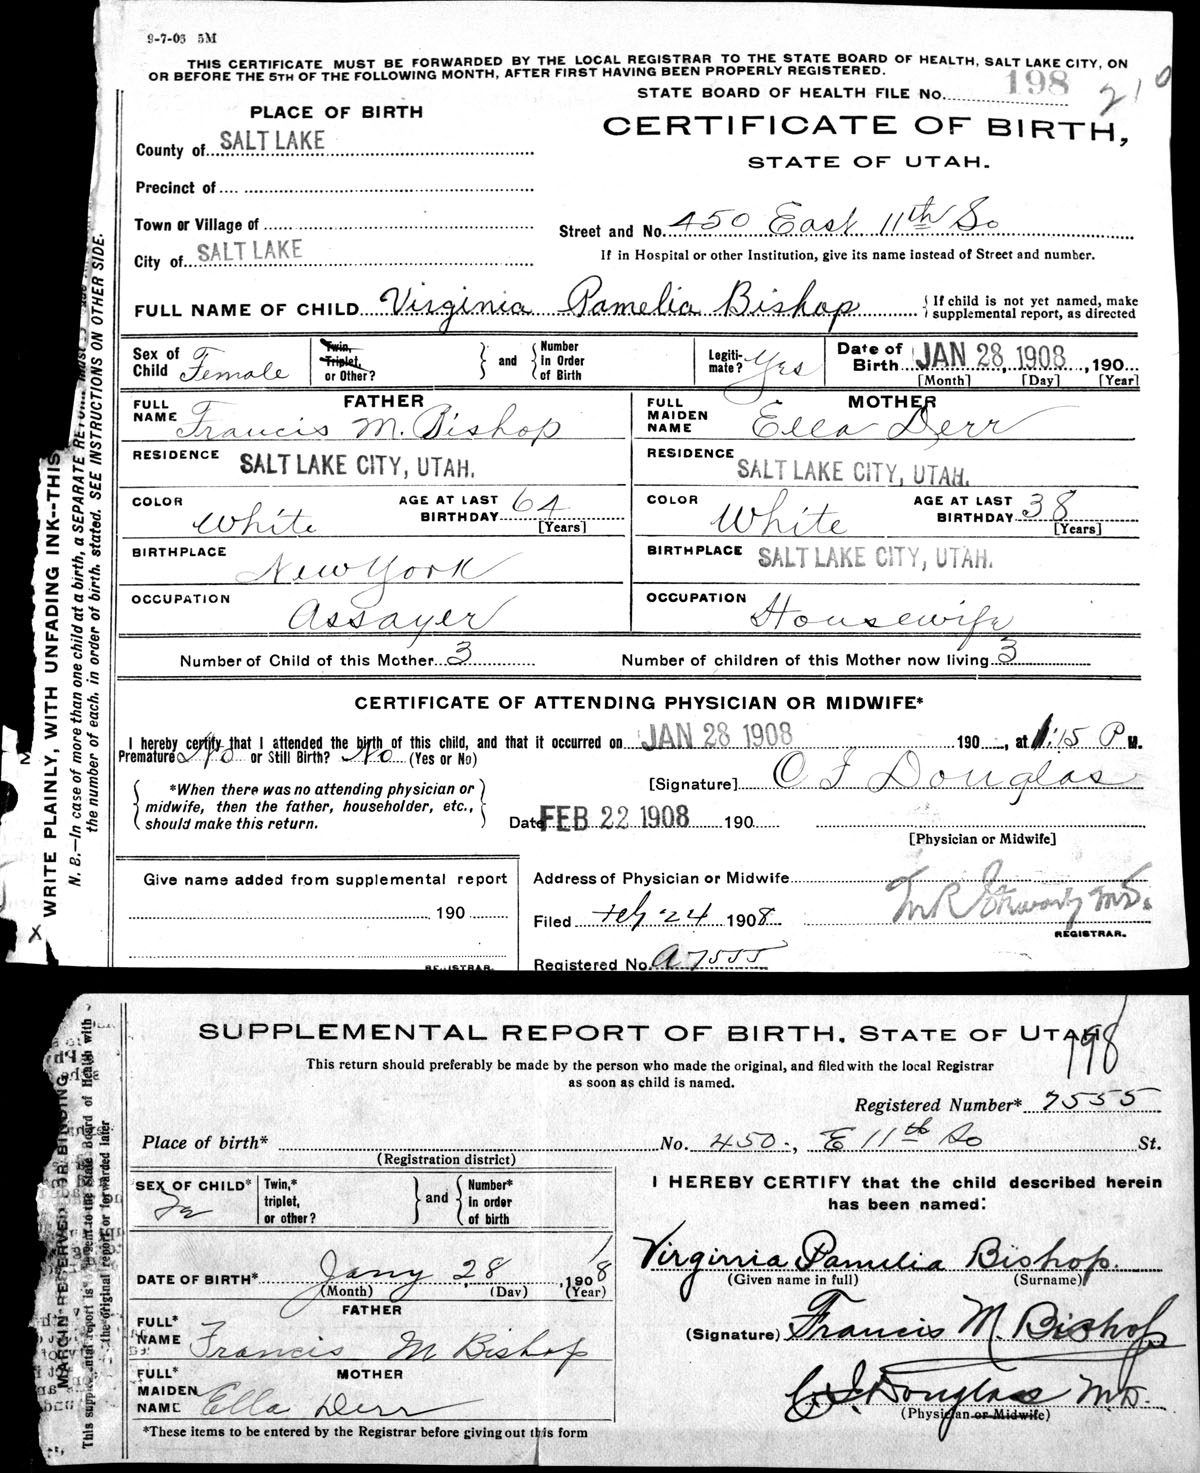 9-7-06 5M
THIS CERTIFICATE MUST BE FORWARDED BY THE LOCAL REGISTRAR TO THE STATE BOARD OF HEALTH, SALT LAKE CITY, ON
OR BEFORE THE 5TH OF THE FOLLOWING MONTH, AFTER FIRST HAVING BEEN PROPERLY REGISTERED.
STATE BOARD OF HEALTH FILE No. 198 210
PLACE OF BIRTH
CERTIFICATE OF BIRTH,
STATE OF UTAH.
County of SALT LAKE
Precinct of
Town or Village of
Street and No. 450 East 11th So
City of SALT LAKE
If in Hospital or other Institution, give its name instead of Street and number.
FULL NAME OF CHILD Virginia Pamelia Bishop { If child is not yet named, make supplemental report, as directed
Sex of Child Female Twin, Triplet, or Other? } and { Number in Order of Birth Legiti-mate? Yes Date of Birth JAN 28, 1908, 190
[Month] [Day] [Year]
FATHER MOTHER
FULL NAME Francis M. Bishop FULL MAIDEN NAME Ella Derr
RESIDENCE SALT LAKE CITY, UTAH. RESIDENCE SALT LAKE CITY, UTAH.
COLOR White AGE AT LAST BIRTHDAY 64 [Years] COLOR White AGE AT LAST BIRTHDAY 38 [Years]
BIRTHPLACE New York BIRTHPLACE SALT LAKE CITY, UTAH.
OCCUPATION Assayer OCCUPATION Housewife
Number of Child of this Mother 3 Number of children of this Mother now living 3
CERTIFICATE OF ATTENDING PHYSICIAN OR MIDWIFE*
I hereby certify that I attended the birth of this child, and that it occurred on JAN 28 1908 190, at 1:15 P M.
Premature No or Still Birth? No (Yes or No)
[Signature] O J Douglas
*When there was no attending physician or
midwife, then the father, householder, etc.,
should make this return.
Date FEB 22 1908 190
[Physician or Midwife]
Give name added from supplemental report
190
REGISTRAR.
Address of Physician or Midwife
Filed Feb 24 1908
REGISTRAR.
Registered No. A7555
WRITE PLAINLY, WITH UNFADING INK--THIS
N. B.—In case of more than one child at a birth, a SEPARATE
the number of each, in order of birth, stated. SEE INSTRUCTIONS ON OTHER SIDE.
X
SUPPLEMENTAL REPORT OF BIRTH, STATE OF UTAH
198
This return should preferably be made by the person who made the original, and filed with the local Registrar
as soon as child is named.
Registered Number* 7555
Place of birth* No. 450., E 11th So St.
(Registration district)
SEX OF CHILD* Fe Twin,* triplet, or other? } and { Number* in order of birth
I HEREBY CERTIFY that the child described herein
has been named:
Virginia Pamelia Bishop.
(Given name in full) (Surname)
DATE OF BIRTH* Jany 28, 1908
(Month) (Day) (Year)
FATHER
FULL* NAME Francis M Bishop
(Signature) Francis M. Bishop
MOTHER
FULL* MAIDEN NAME Ella Derr
O. J. Douglas M.D.
(Physician or Midwife)
*These items to be entered by the Registrar before giving out this form
MARGIN RESERVED FOR BINDING
the original report or forwarded later